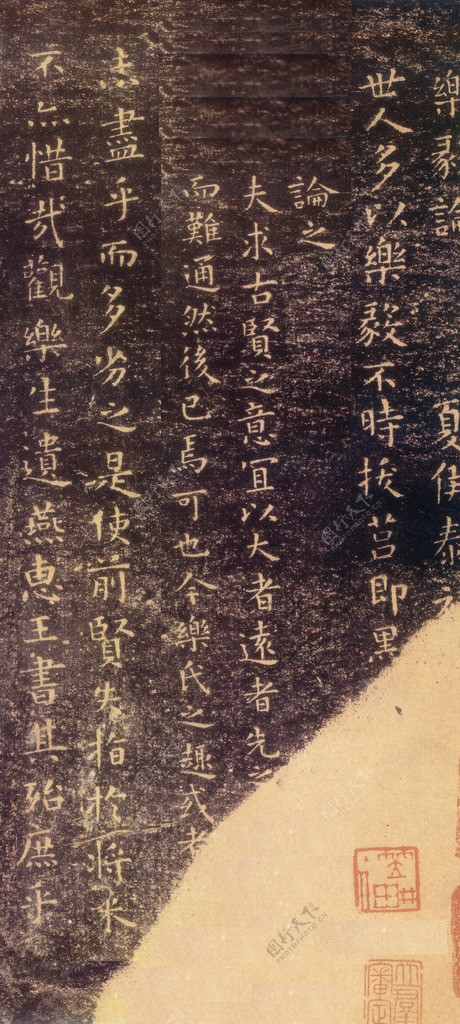 樂毅論 夏侯泰
世人多以樂毅不時拔莒即墨
論之
夫求古賢之意宜以大者遠者先之
而難通然後已焉可也今樂氏之趣或者
志盡乎而多劣之是使前賢失指於將來
不亦惜哉觀樂生遺燕惠王書其殆庶乎
图行天下
PHOTOPHOTO.CN